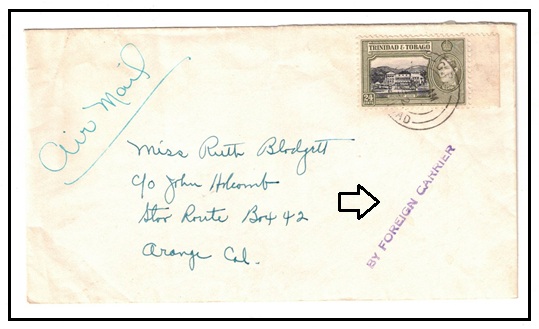 Air Mail
TRINIDAD & TOBAGO
24
Miss Ruth Blodgett
c/o John Holcomb
Star Route Box 42
Orange Cal.
BY FOREIGN CARRIER